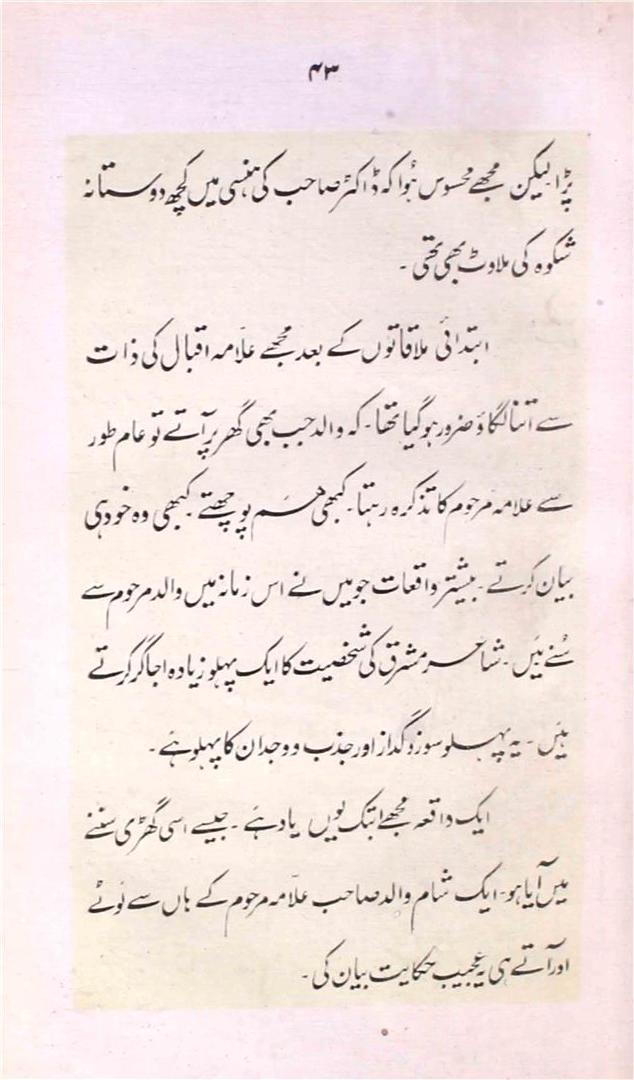 ۴۳
پڑا لیکن مجھے محسوس ہُوا کہ ڈاکٹر صاحب کی ہنسی میں کچھ دوستانہ
شکوہ کی ملاوٹ بھی تھی ۔
ابتدائی ملاقاتوں کے بعد مجھے علّامہ اقبال کی ذات
سے اتنا لگاؤ ضرور ہو گیا تھا ۔ کہ والد جب بھی گھر پر آتے تو عام طور
سے علامہ مرحوم کا تذکرہ رہتا ۔ کبھی ہم پوچھتے ۔ کبھی وہ خود ہی
بیان کرتے ۔ بیشتر واقعات جو میں نے اس زمانہ میں والد مرحوم سے
سُنے ہیَں ۔ شاعر مشرق کی شخصیت کا ایک پہلو زیادہ اجاگر کرتے
ہیَں ۔ یہ پہلو سوز و گداز اور جذب و وجدان کا پہلو ہَے ۔
ایک واقعہ مجھے ابتک یُوں یاد ہَے ۔ جیسے اسی گھڑی سننے
میں آیا ہو ۔ ایک شام والد صاحب علّامہ مرحوم کے ہاں سے لَوٹے
اور آتے ہی یہ عجیب حکایت بیان کی ۔